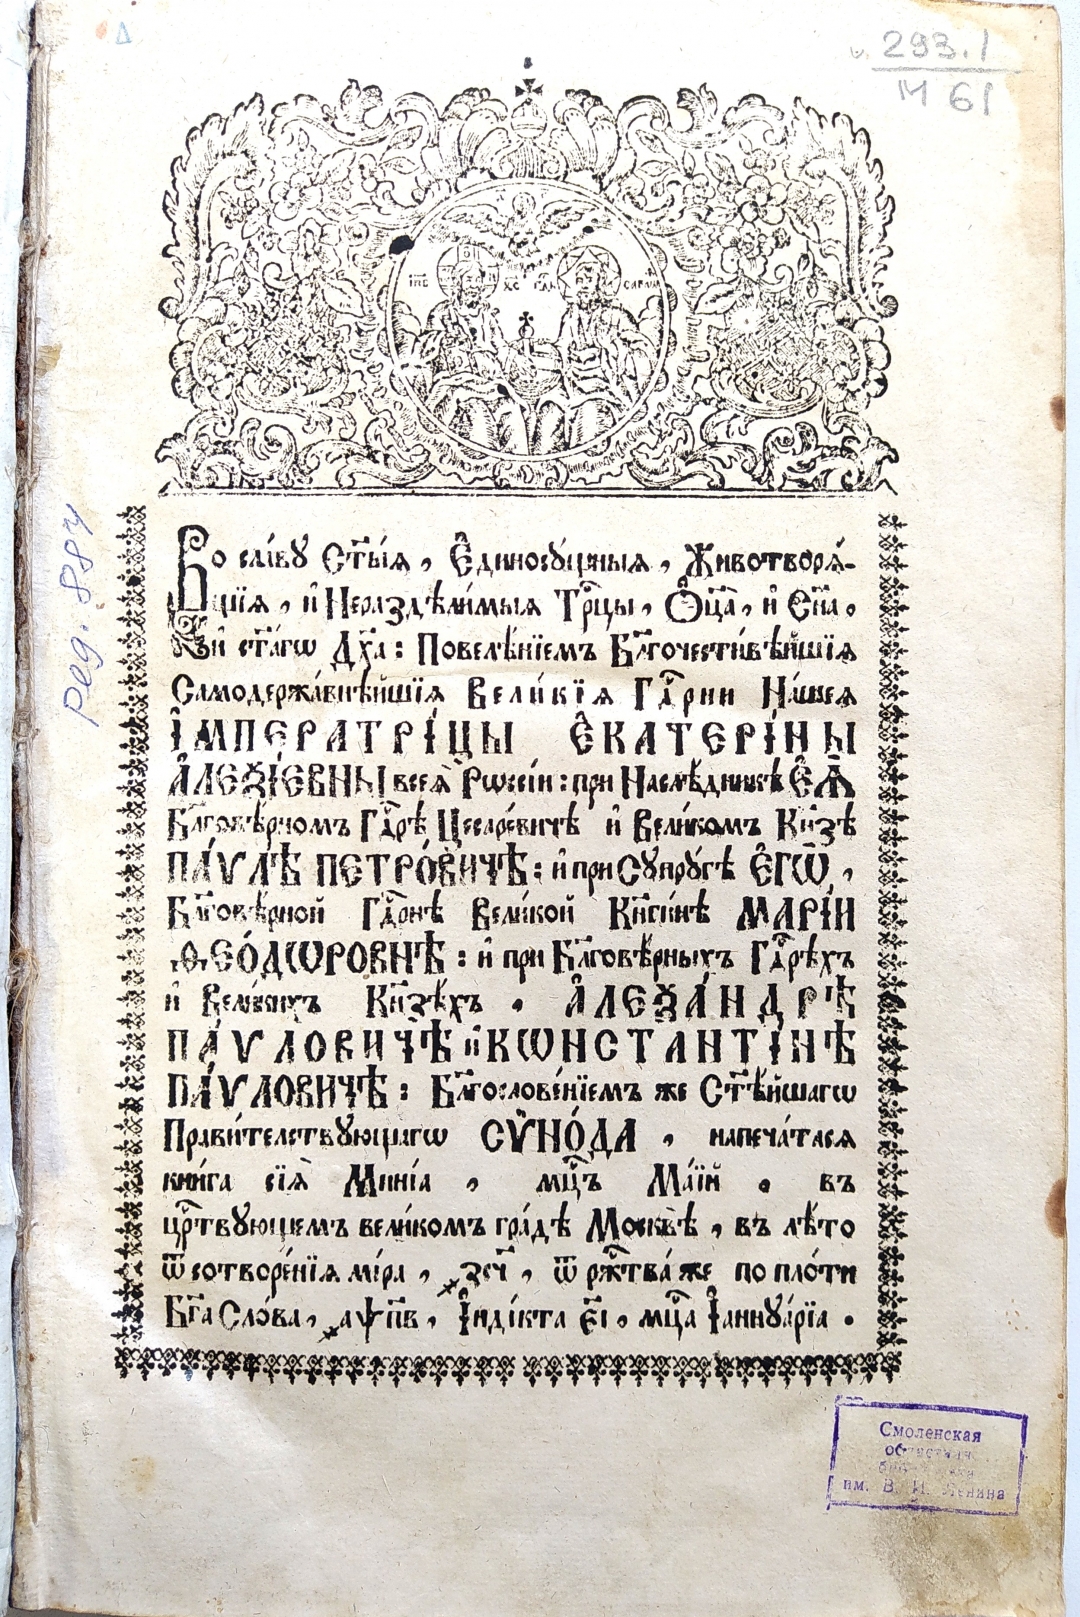 293.1
М 61
Ред. 887
І҃ИС Х҃С
Во сла́ву Ст҃ы́ѧ, Є҆диносꙋ́щныѧ, Животворѧ́-
щїѧ, и҆ Нераздѣли́мыѧ Трⷪ҇цы, Ѻ҆ц҃а̀, и҆ Сн҃а,
и҆ ст҃а́гѡ Дх҃а: Повелѣ́нїемъ Бл҃гочести́вѣйшїѧ
Самодержа́внѣйшїѧ Вели́кїѧ Гдⷭ҇рни На́шеѧ
І҆МПЕРАТРІ́ЦЫ Є҆КАТЕРІ́НЫ
А҆ЛЕѮІ́ЕВНЫ всеѧ̀ Рѡссі́и: при Наслѣ́дникѣ Є҆Ѧ̀
Бл҃говѣ́рномъ Гдⷭ҇рѣ Цесаре́вичѣ и҆ Вели́комъ Кн҃зѣ
ПА́ѴЛѢ ПЕТРО́ВИЧѢ: и҆ при Сꙋпрꙋ́гѣ Є҆ГѠ̀,
Бл҃говѣ́рной Гдⷭ҇рнѣ Вели́кой Кн҃ги́нѣ МАРІ́И
ѲЕО́ДѠРОВНѢ: и҆ при Бл҃говѣ́рныхъ Гдⷭ҇рѣхъ
и҆ Вели́кихъ Кн҃зѣ́хъ, А҆ЛЕѮА́НДРѢ
ПА́ѴЛОВИЧѢ и҆ КѠНСТАНТІ́НѢ
ПА́ѴЛОВИЧѢ: Бл҃гослове́нїемъ же Ст҃ѣ́йшагѡ
Прави́телствꙋющагѡ СѴНО́ДА, напеча́тасѧ
кни́га сїѧ̀ Мині́а, мцⷭ҇ъ Ма́їй, въ
црⷭ҇твꙋющемъ вели́комъ гра́дѣ Москвѣ̀, въ лѣ́то
ѿ сотворе́нїѧ мі́ра, ҂зсч҃, ѿ рж҃тва́ же по пло́ти
Бг҃а Сло́ва, ҂аѱп҃в, І҆нді́кта є҃і, мцⷭ҇а І҆аннꙋа́рїа.
Смоленская
областная
библиотека
им. В. И. Ленина